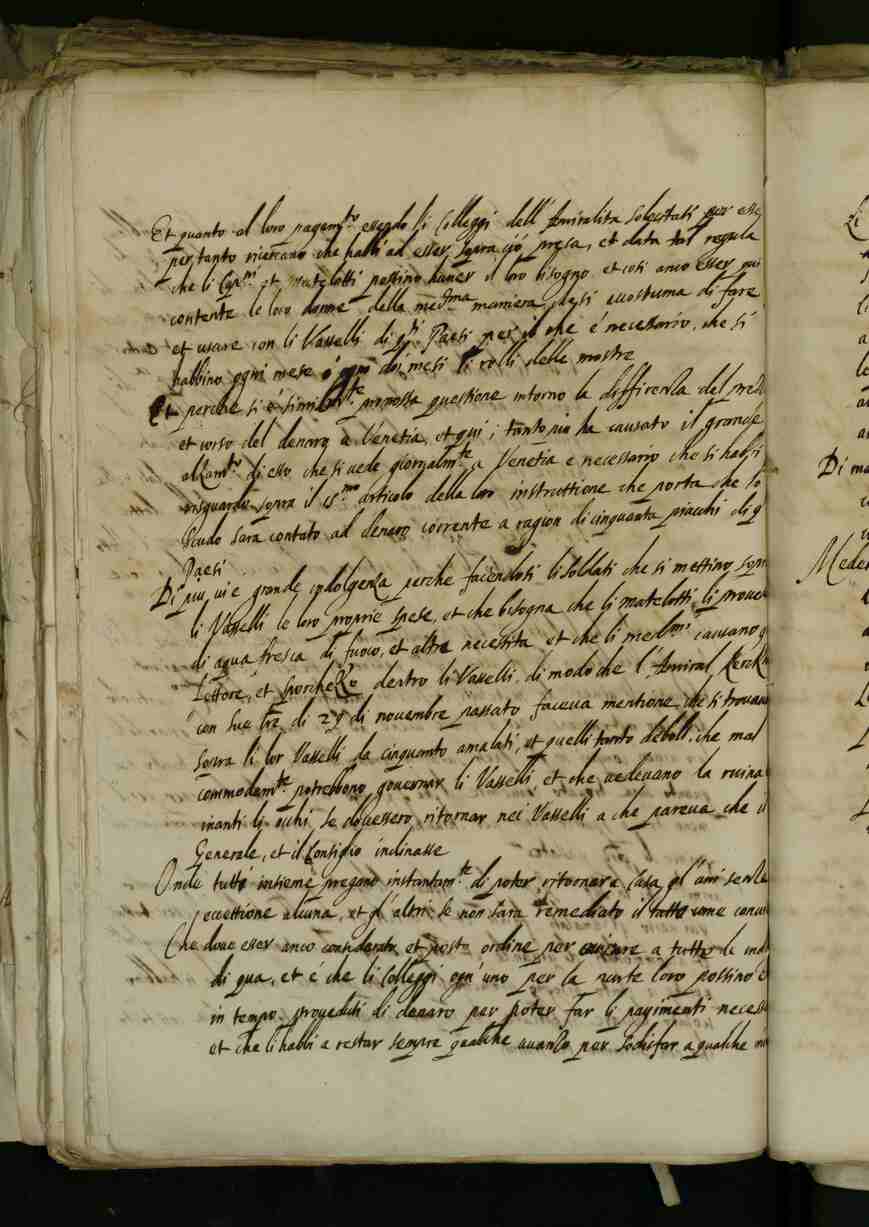 Et quanto al loro pagam.to essendo li Colleggi dell' Amiralita solecitati per esse
per tanto ricercano che habbi ad esser sopra ciò presa, et data tal regula
che li Cap.ni et Matelotti possino hauer il loro bisogno et così anco esser
contente le loro donne della med.ma maniera che si accostuma di fare
et usare con li Vasselli di q.ti Paesi per il che é necessario, che si
habbino ogni mese ó ogni doi mesi li rolli delle mostre
Et perche si é similm.te mossa questione intorno la differenza del
et corso del denaro a Venetia, et qui; tanto più ha causato il grande
alzam.to di esso che si uede giornalm.te a Venetia e necessario che si habbi
risguardo sopra il 15.mo articolo della lor instruttione che porta che lo
scudo sara contato ad denaro corrente a ragion di cinquanta piacchi di q
Paesi
Di piu, ui e grande indolgenza perche facendosi li soldati che si mettino sopra
li Vasselli le loro proprie spese, et che bisogna che li matelotti li
di aqua fresca di fuoco, et altre necessita et che li med.mi causano
fettore, et sporchezzo dentro li Vasselli, di modo che l' Amiral
con sue l're di 29 di nouembre passato faceua mentione che si trouaua
sopra li lor Vasselli da cinquanta amalati, et quelli tanto deboli, che mal
commodam.te potrebbono gouernar li Vasselli, et che uedeuano la ruina
inanti li ochi, se douessero ritornar nei Vasselli a che pareua che il
Generale, et il Consiglio inclinasse
Onde tutti insieme pregono instantam.te di poter ritornare a Casa gl' uni senza
eccettione alcuna, et gl' altri se non sara remediato il tutto come
Che deue esser anco considerato, et posto ordine per a tutte le
di qua, et e che li Colleggi ogn' uno per la parte loro possino
in tempo proueduti di denaro per poter far li pagimenti
et che li habbi a restar sempre qualche auanzo per sodisfar a qualche